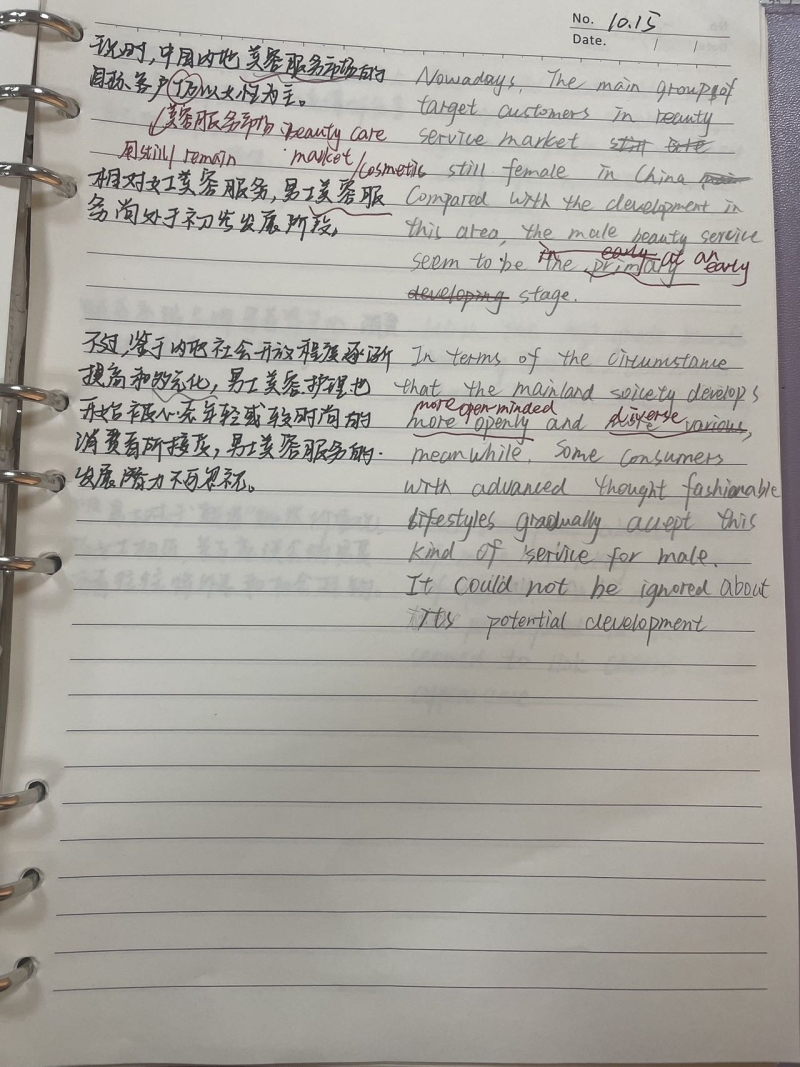 No. 10.15
Date. / /
现时,中国内地美容服务市场的
目标客户仍以女性为主。
美容服务市场: beauty care
用still/remain market/cosmetic
相对女士美容服务,男士美容服
务尚处于初步发展阶段,
Nowadays, The main group of
target customers in beauty
service market still are
still female in China main
Compared with the development in
this area, the male beauty service
in early at an early
seem to be the primary
developing stage.
不过,鉴于内地社会开放程度逐渐
提高和多元化,男士美容护理也
开始被心态年轻或较时尚的
消费者所接受,男士美容服务的
发展潜力不可忽视。
In terms of the circumstance
that the mainland soicety develops
more open-minded diverse
more openly and various,
meanwhile. Some consumers
with advanced thought fashionable
lifestyles gradually accept this
kind of service for male.
It could not be ignored about
Its potential development